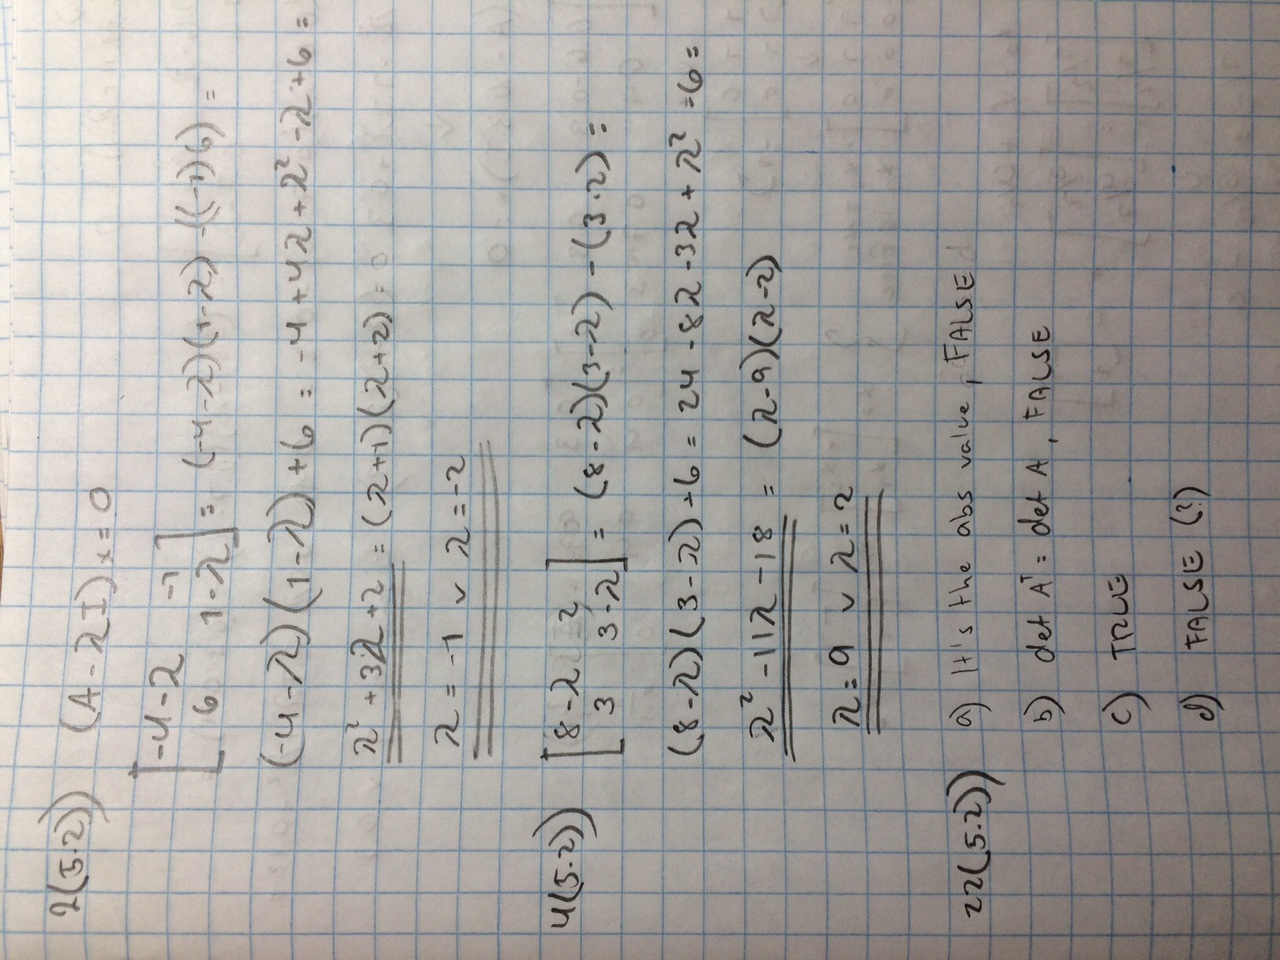 2(5.2)) (A - λI)x = 0
[-4-λ -1
6 1-λ] = (-4-λ)(1-λ) - ((-1)6) =
(-4-λ)(1-λ) + 6 = -4 + 4λ + λ² - λ + 6 =
λ² + 3λ + 2 = (λ+1)(λ+2) = 0
λ = -1 ∨ λ = -2
4(5.2)) [8-λ 2
3 3-λ] = (8-λ)(3-λ) - (3·2) =
(8-λ)(3-λ) - 6 = 24 - 8λ - 3λ + λ² - 6 =
λ² - 11λ - 18 = (λ-9)(λ-2)
λ = 9 ∨ λ = 2
22(5.2)) a) It's the abs value, FALSE
b) det Aᵀ = det A, FALSE
c) TRUE
d) FALSE (?)